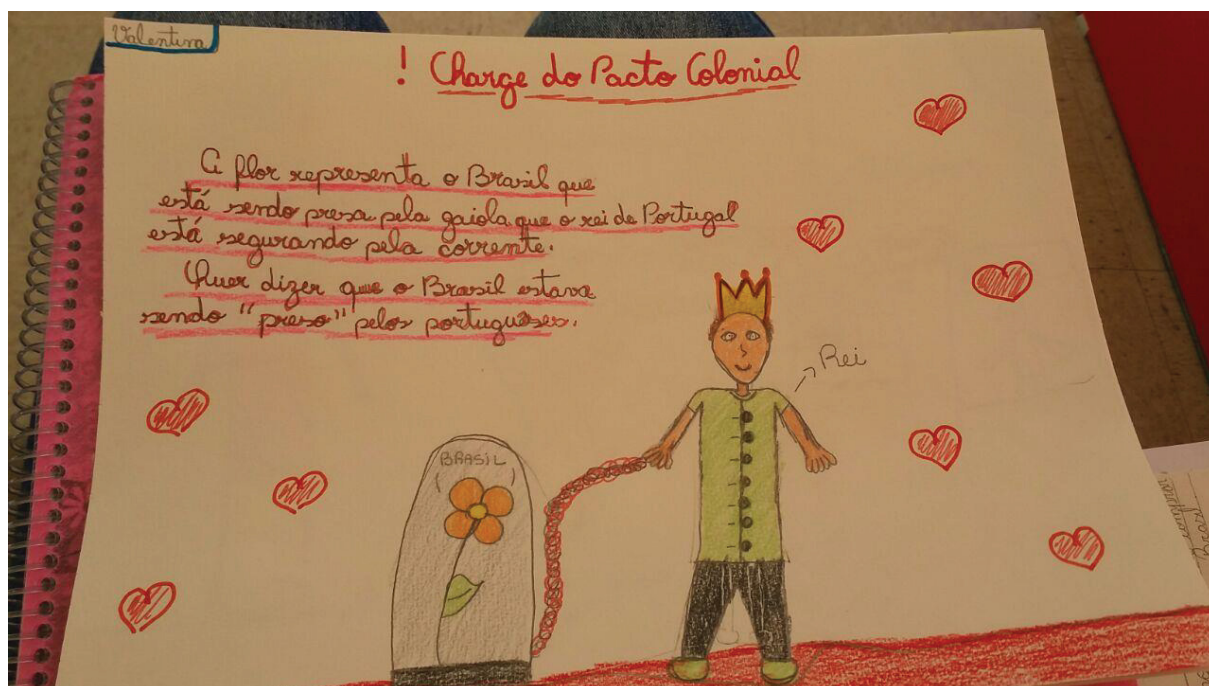 Valentina
! Charge do Pacto Colonial
A flor representa o Brasil que
está sendo presa pela gaiola que o rei de Portugal
está segurando pela corrente.
Quer dizer que o Brasil estava
sendo "preso" pelos portugueses.
Rei
BRASIL
Brasil